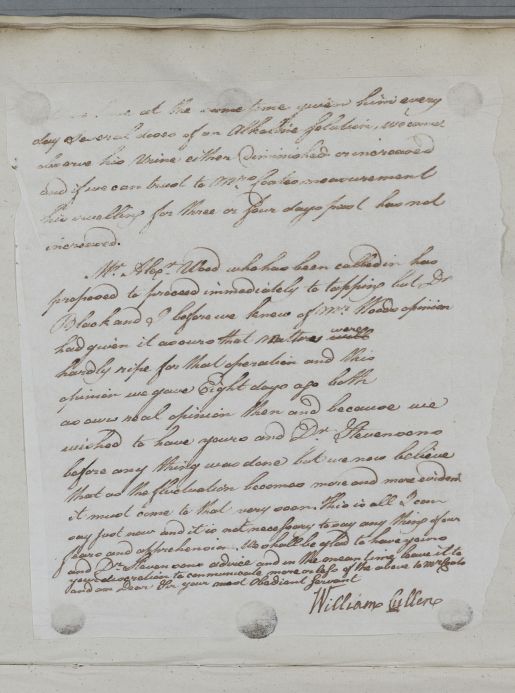 at the same time given him every
day several doses of an Alkaline solution, we cannot
observe his Urine either diminished or increased
and if we can trust to Mrs Coats measurement
his swelling for three or four days past has not
increased.
Mr. Alexr. Wood who has been called in has
proposed to proceed immediately to tapping but Dr
Black and I before we knew of Mr. Woods opinion
had given it as ours that matters were
hardly ripe for that operation and this
opinion we gave Eight days ago both
as our real opinion then and because we
wished to have yours and Dr. Stevensons
before any thing was done but we now believe
that as the fluctuation becomes more and more evident
it must come to that very soon. This is all I can
say just now and it is not necessary to say any thing of our
fears and apprehension. We shall be glad to have yours
and Dr. Stevensons advice and in the mean time leave it to
your discretion to communicate more or less of the above to Mr Coats
I and am Dear Sir your most Obedient Servant
William Cullen